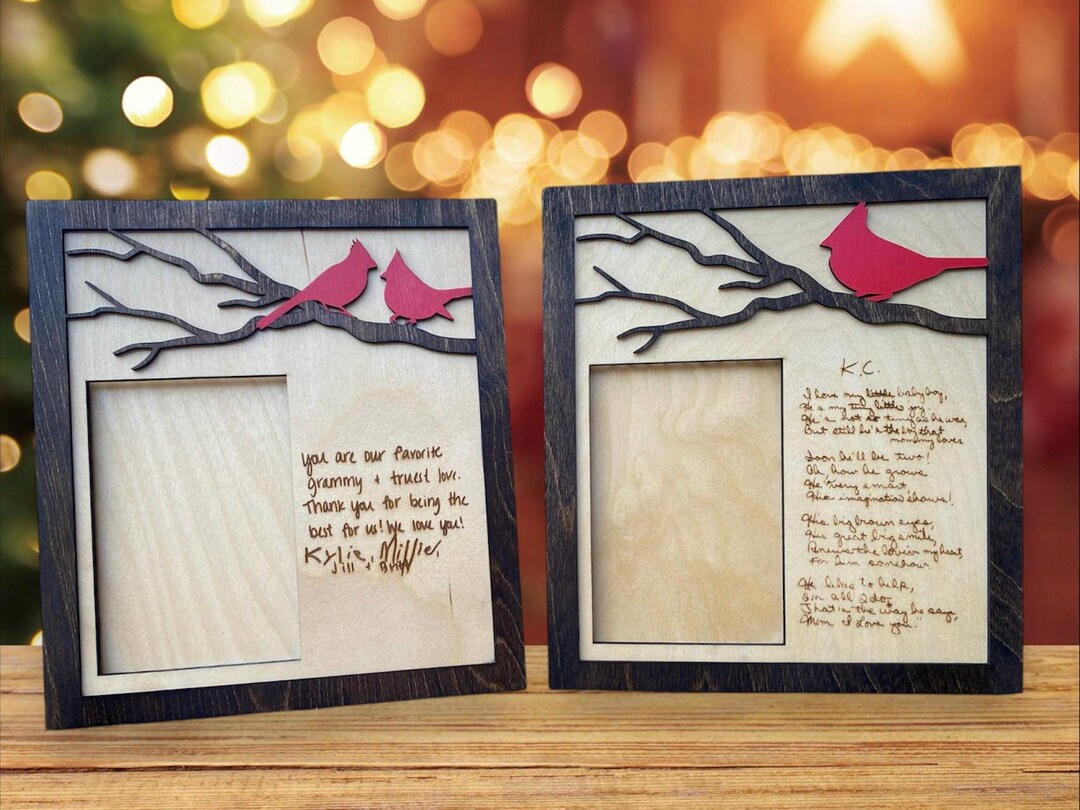 you are our favorite
grammy + truest love.
Thank you for being the
best for us! We love you!
Kylie, Millie,
Jill +
K.C.
I love my little baby boy,
He's my tiny little joy
He's not so tiny as he was,
But still he's the boy that
mommy loves
Soon he'll be two!
Oh how he grows
He's very smart,
His imagination shows!
His big brown eyes,
His great big smile,
Renews the love in my heart,
For him somehow
He likes to help,
In all I do,
That's the way he says,
"Mom I love you."